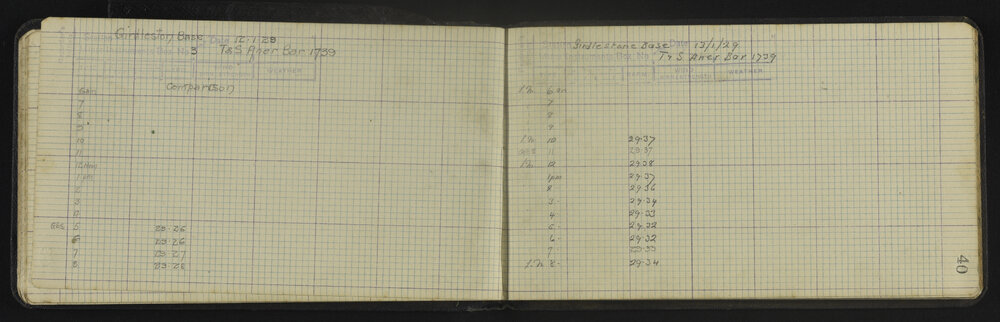 Girdleston Base Date 12.1.29
3 T&S Aner Bar 1739
WEATHER
Comparison
6am
7
8
9
10
11
12
1 pm
2
3
4
5 29.26
6 29.26
7 29.27
8 29.28
Girdlestone Base Date 13/1/29
T & S Aner Bar 1739
WEATHER
6 am
7
8
9
10 29.37
11 29.37
12 29.38
1pm 29.37
2 29.36
3 29.34
4 29.33
5 29.32
6 29.32
7 29.33
8 29.34
40